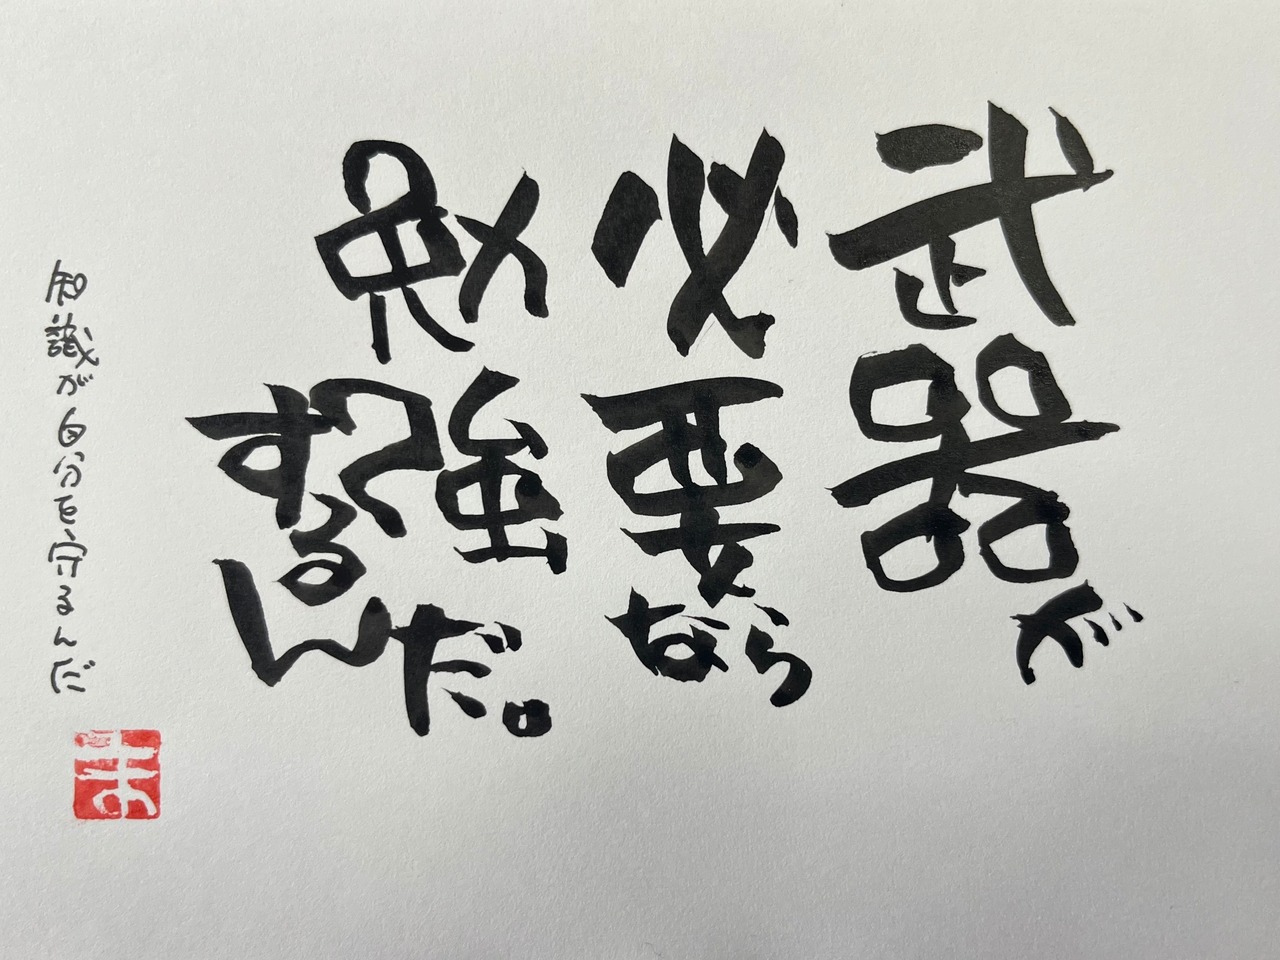 武器が
必要なら
勉強するんだ。
知識が自分を守るんだ
ま